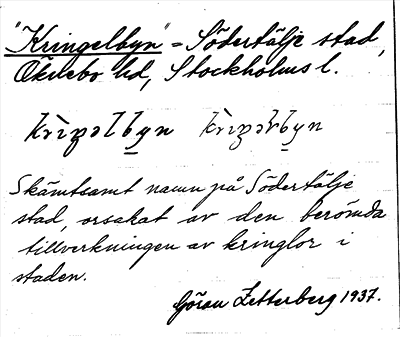 "Kringelbyn" = Södertälje stad,
Öknebo hd, Stockholms l.
Skämtsamt namn på Södertälje
stad, orsakat av den berömda
tillverkningen av kringlor i
staden.
Göran Zetterberg 1937.